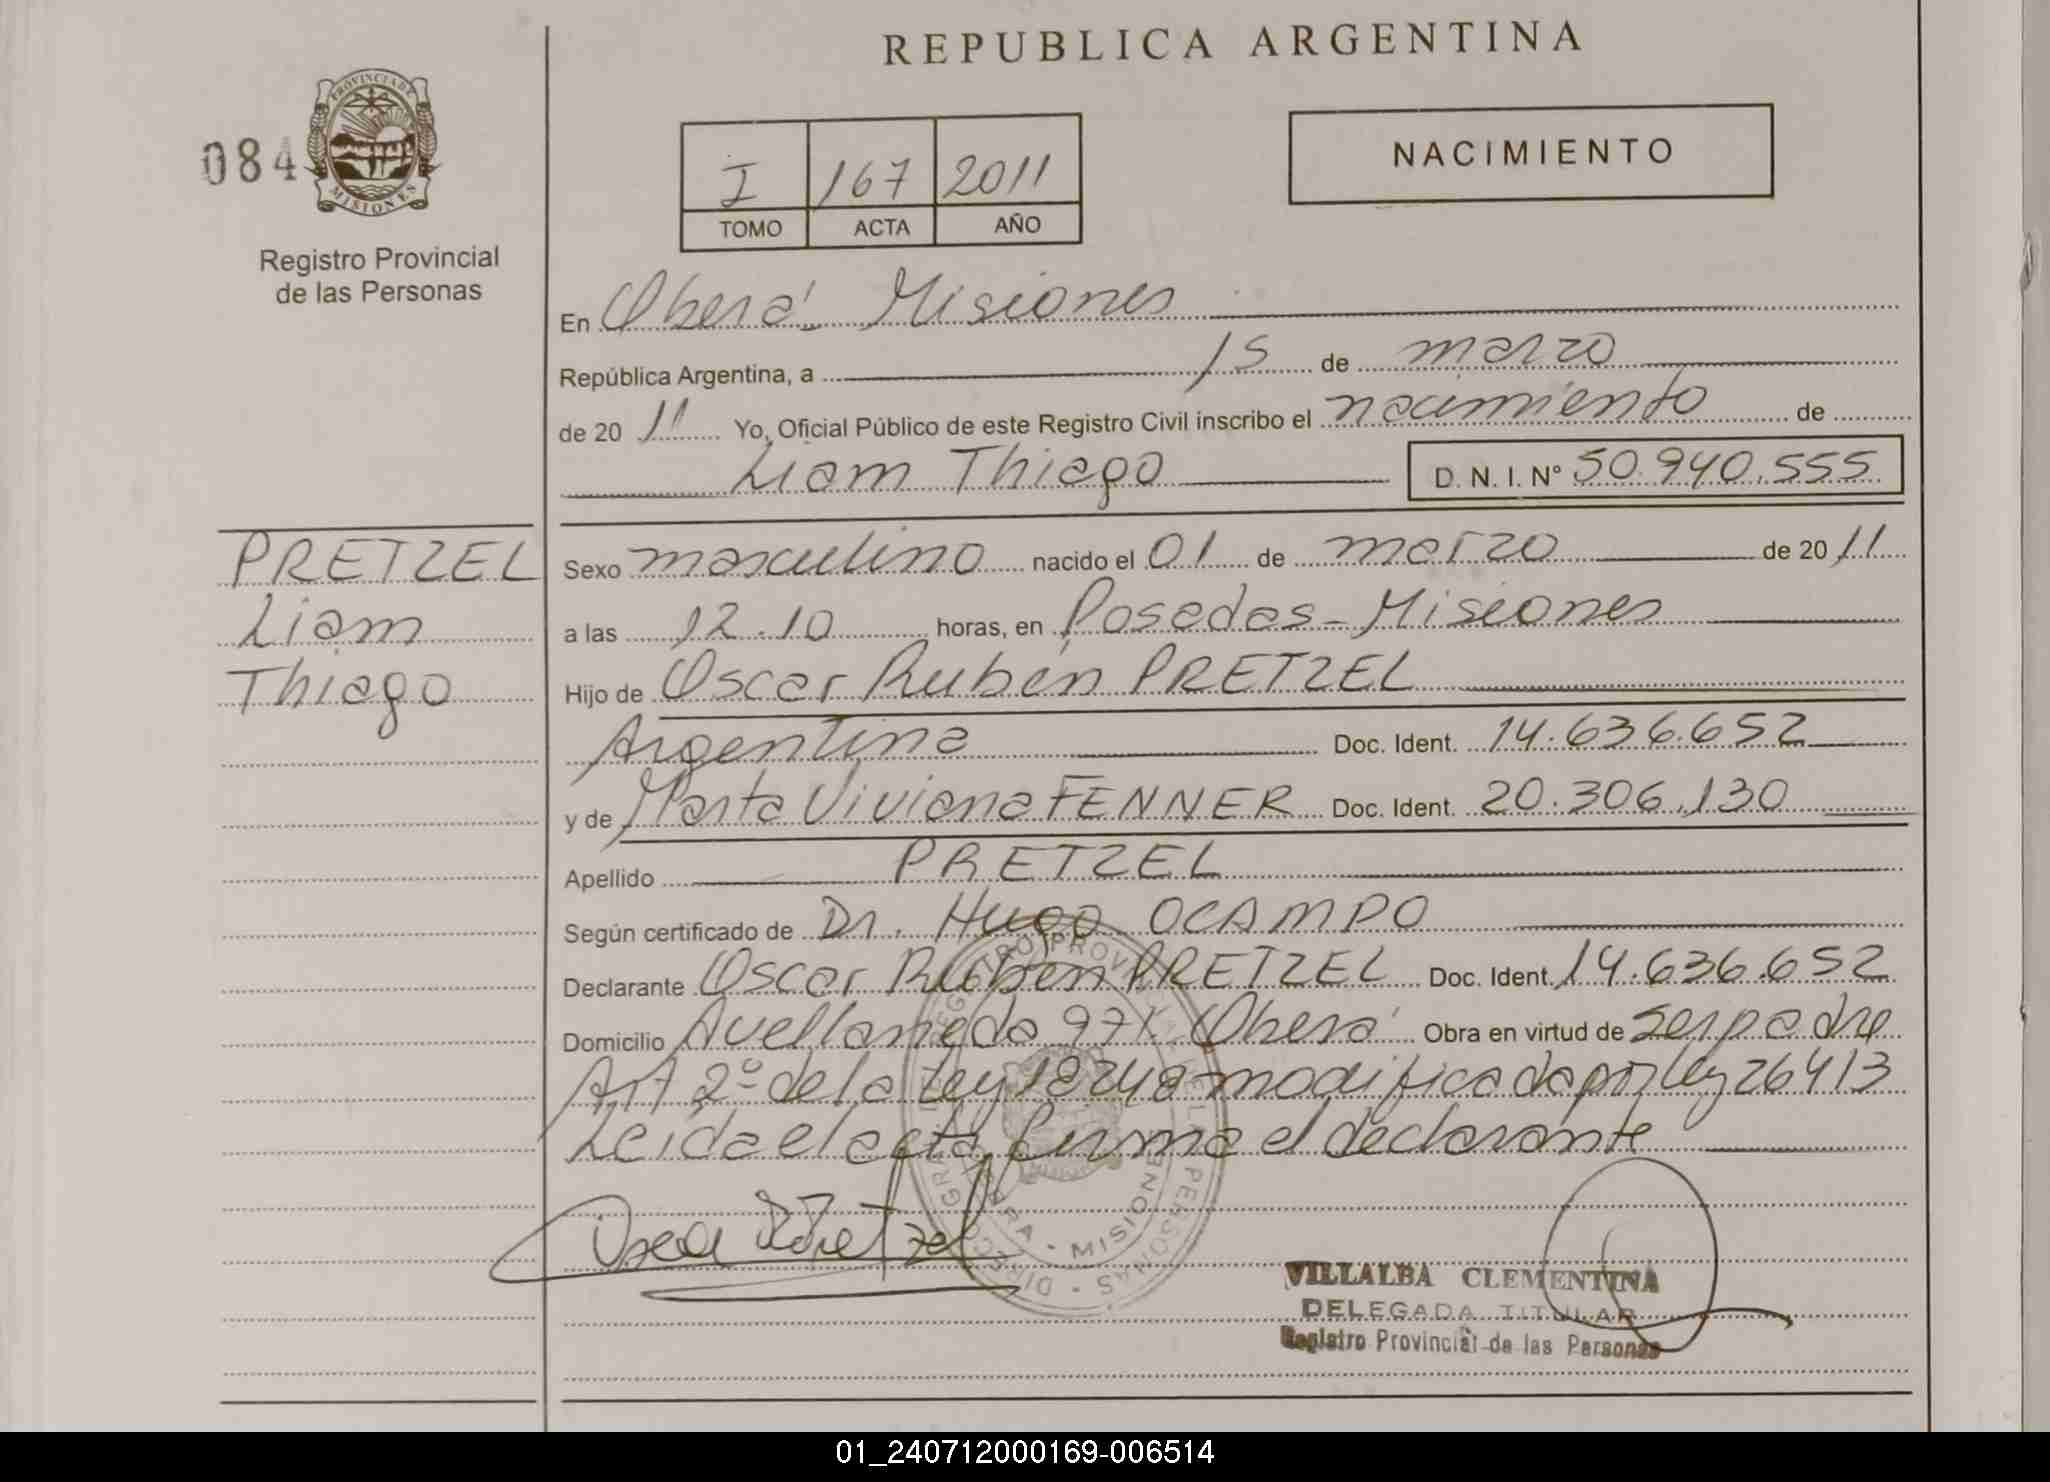 REPUBLICA ARGENTINA
084
PROVINCIA DE
MISIONES
Registro Provincial
de las Personas
I 167 2011
TOMO ACTA AÑO
NACIMIENTO
En Oberá Misiones
República Argentina, a 15 de marzo
de 20 11 Yo, Oficial Público de este Registro Civil inscribo el nacimiento de
Liam Thiago D. N. I. Nº 50.940.555
PRETZEL
Liam
Thiago
Sexo masculino nacido el 01 de marzo de 20 11
a las 12.10 horas, en Posadas - Misiones
Hijo de Oscar Rubén PRETZEL
Argentina Doc. Ident. 14.636.652
y de Marta Viviana FENNER Doc. Ident. 20.306.130
Apellido PRETZEL
Según certificado de Dr. Hugo OCAMPO
Declarante Oscar Rubén PRETZEL Doc. Ident. 14.636.652
Domicilio Avellaneda 971 Oberá Obra en virtud de ser padre
Art 2º de la Ley 18248 modificada por Ley 26413
Leida el acta, firma el declarante
Oscar R Pretzel
VILLALBA CLEMENTINA
DELEGADA TITULAR
Registro Provincial de las Personas
01_240712000169-006514